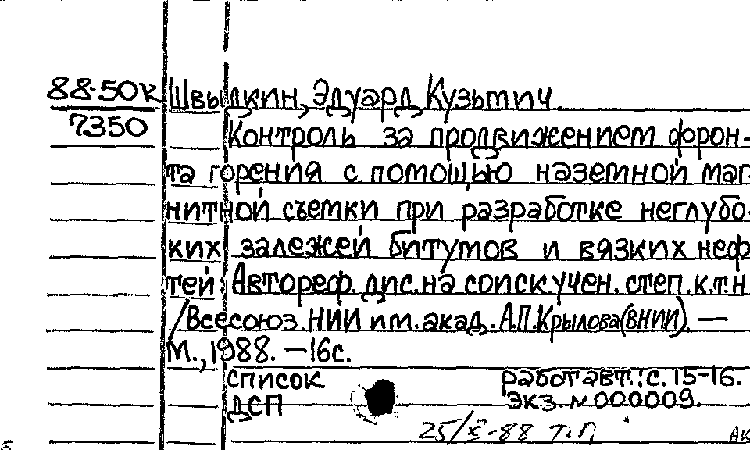 88-50к Швыдкин, Эдуард Кузьмич.
7350 Контроль за продвижением фрон-
та горения с помощью наземной маг
нитной съемки при разработке неглубо-
ких залежей битумов и вязких неф
тей: Автореф. дис. на соиск. учен. степ. к.т.н
/Всесоюз. НИИ им. акад. А.П. Крылова (ВНИИ). —
М., 1988. — 16с.
список работ авт.: с. 15-16.
ДСП экз. № 000009.
25/X-88 т.п.